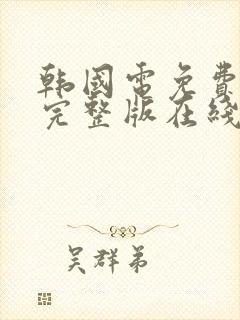 韩國電免費
完整版在綫
吴群弟